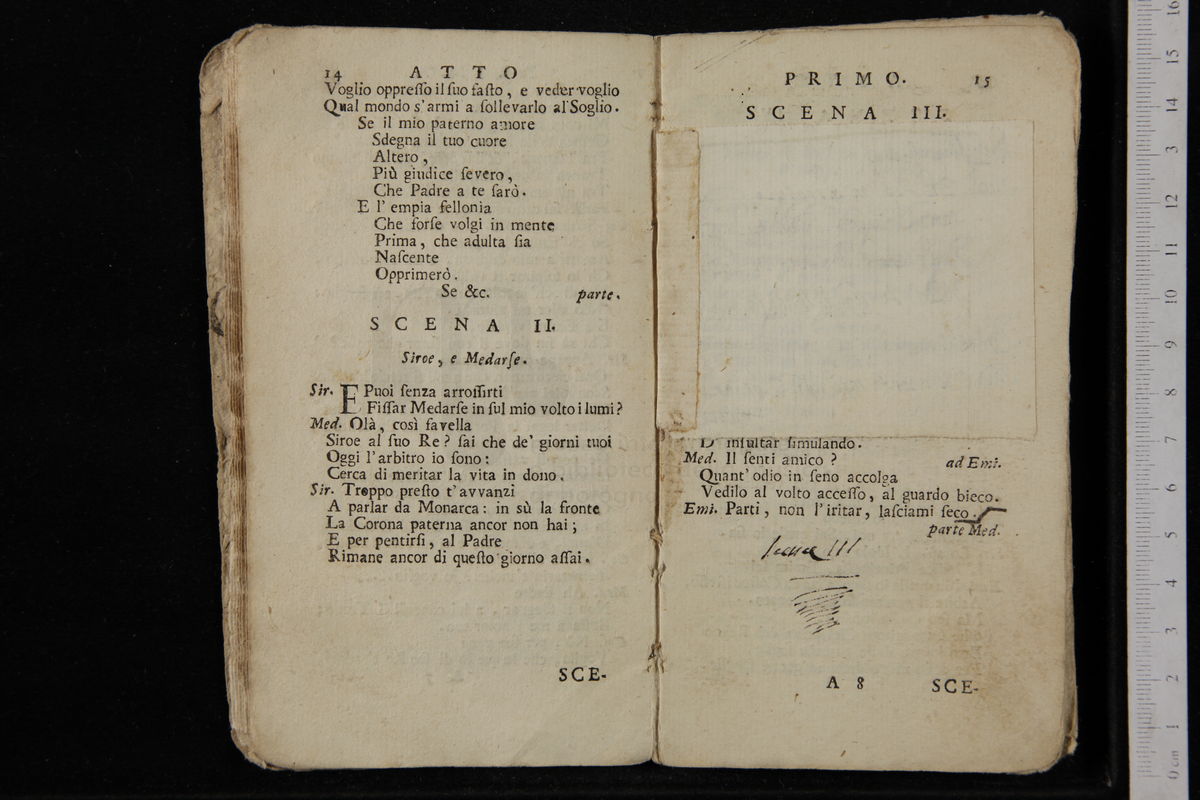 14 ATTO
Voglio oppreſſo il ſuo faſto, e veder voglio
Qual mondo s'armi a ſollevarlo al Soglio.
Se il mio paterno amore
Sdegna il tuo cuore
Altero,
Più giudice ſevero,
Che Padre a te ſarò.
E l' empia fellonia
Che forſe volgi in mente
Prima, che adulta ſia
Naſcente
Opprimerò.
Se &c. parte.
SCENA II.
Siroe, e Medarſe.
Sir. E Puoi ſenza arroſſirti
Fiſſar Medarſe in ſul mio volto i lumi?
Med. Olà, così favella
Siroe al ſuo Re? ſai che de' giorni tuoi
Oggi l'arbitro io ſono:
Cerca di meritar la vita in dono.
Sir. Troppo preſto t'avvanzi
A parlar da Monarca: in sù la fronte
La Corona paterna ancor non hai;
E per pentirſi, al Padre
Rimane ancor di queſto giorno aſſai.
SCE-
PRIMO. 15
SCENA III.
D' inſultar ſimulando.
Med. Il ſenti amico? ad Emi.
Quant' odio in ſeno accolga
Vedilo al volto acceſſo, al guardo bieco.
Emi. Parti, non l'iritar, laſciami ſeco.
parte Med.
scena III
A 8 SCE-